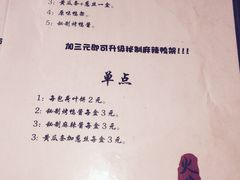 3: 黄瓜条+葱丝一盒。
4: 原味鸭架。
5: 秘制烤鸭酱。
加三元即可升级秘制麻辣鸭架!!!
单点
1: 每包荷叶饼2元。
2: 秘制烤鸭酱每盒3元。
3: 秘制麻辣酱每盒3元。
3: 黄瓜条加葱丝每盒3元。